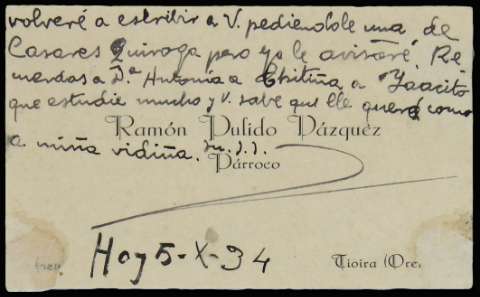 volveré a escribir a V. pediendole una de
Casares Quiroga pero yo le avisaré. Re
cuerdos a D.ª Antonia a Chitiña, a Jaacito
que estudie mucho y V. sabe que lle quero como
Ramón Pulido Vázquez
a miña vidiña.
Párroco
Hoy 5-X-34
Tioira (Ore.